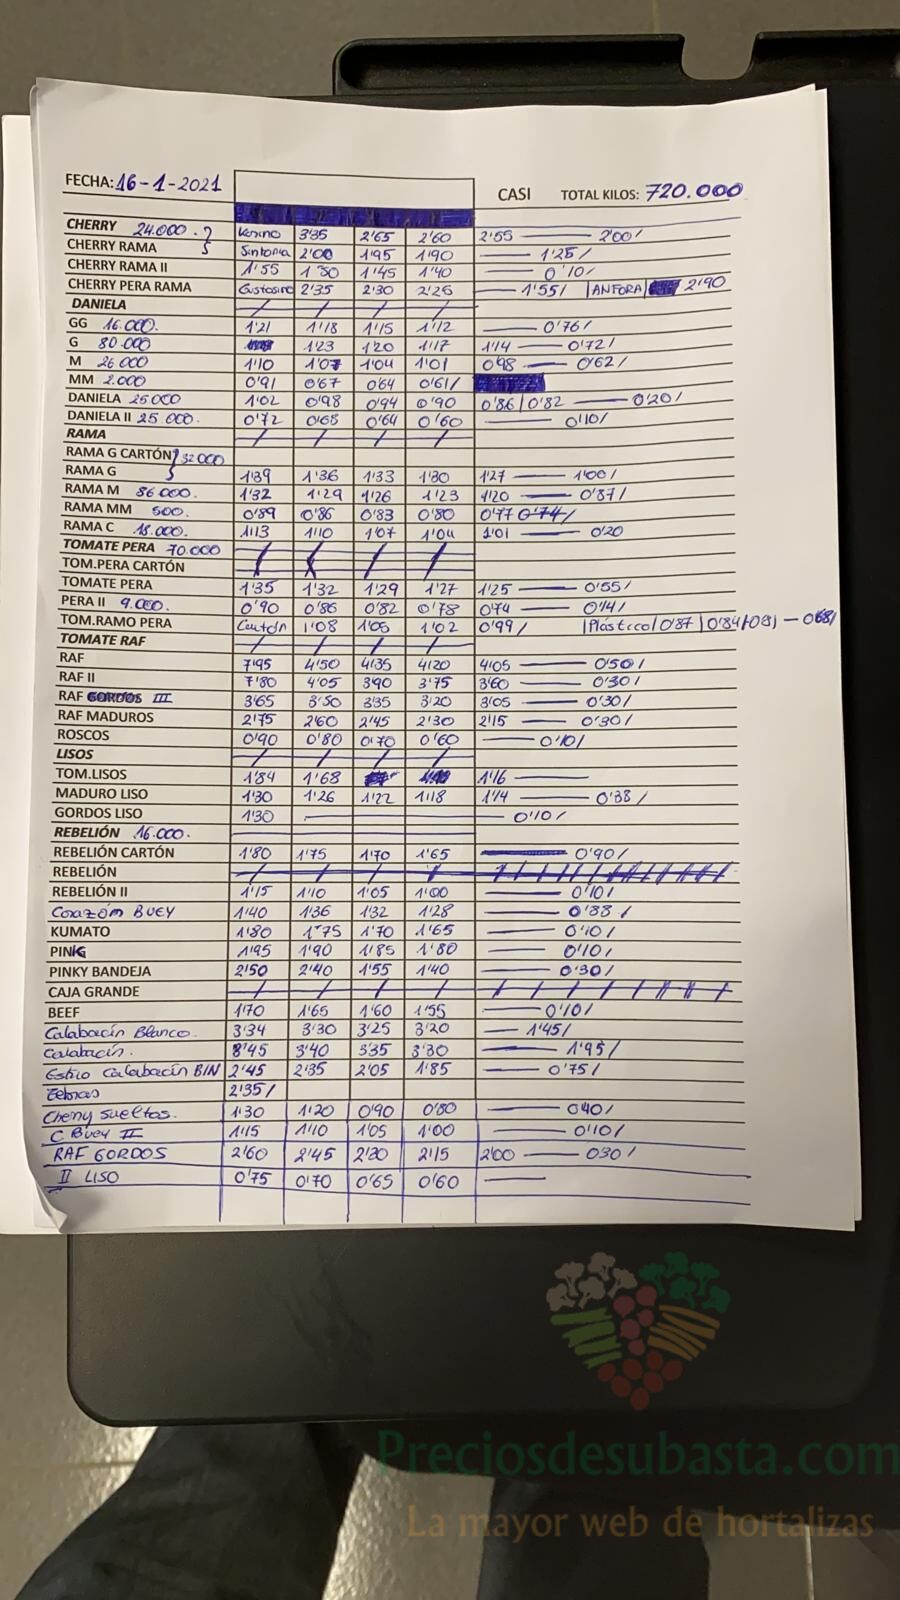 FECHA: 16-1-2021 CASI TOTAL KILOS: 720.000
CHERRY 24.000. 3'35 2'65 2'60 2'55 — 2'00/
CHERRY RAMA Sintonia 2'00 1'95 1'90 — 1'25/
CHERRY RAMA II 1'55 1'50 1'45 1'40 — 0'10/
CHERRY PERA RAMA 2'35 2'30 2'25 — 1'55/ |ANFORA| 2'90
DANIELA / / / /
GG 16.000. 1'21 1'18 1'15 1'12 — 0'76/
G 80.000 1'23 1'20 1'17 1'14 — 0'72/
M 26.000 1'10 1'07 1'04 1'01 0'98 — 0'62/
MM 2.000 0'91 0'67 0'64 0'61/
DANIELA 25000 1'02 0'98 0'94 0'90 0'86 | 0'82 — 0'20/
DANIELA II 25.000. 0'72 0'68 0'64 0'60 — 0'10/
RAMA / / / /
RAMA G CARTÓN 32000
RAMA G 1'39 1'36 1'33 1'30 1'27 — 1'00/
RAMA M 86.000. 1'32 1'29 1'26 1'23 1'20 — 0'87/
RAMA MM 500. 0'89 0'86 0'83 0'80 0'77 0'74/
RAMA C 18.000. 1'13 1'10 1'07 1'04 1'01 — 0'20
TOMATE PERA 70.000 / / / /
TOM.PERA CARTÓN
TOMATE PERA 1'35 1'32 1'29 1'27 1'25 — 0'55/
PERA II 9.000. 0'90 0'86 0'82 0'78 0'74 — 0'14/
TOM.RAMO PERA Cartón 1'08 1'05 1'02 0'99/ |Plástico|0'87 |0'84|0'81 — 0'68/
TOMATE RAF / / / /
RAF 7'95 4'50 4'35 4'20 4'05 — 0'50/
RAF II 7'80 4'05 3'90 3'75 3'60 — 0'30/
RAF GORDOS III 3'65 3'50 3'35 3'20 3'05 — 0'30/
RAF MADUROS 2'75 2'60 2'45 2'30 2'15 — 0'30/
ROSCOS 0'90 0'80 0'70 0'60 — 0'10/
LISOS / / / /
TOM.LISOS 1'84 1'68 1'16 —
MADURO LISO 1'30 1'26 1'22 1'18 1'14 — 0'38/
GORDOS LISO 1'30 — 0'10/
REBELIÓN 16.000.
REBELIÓN CARTÓN 1'80 1'75 1'70 1'65 — 0'90/
REBELIÓN / / / /
REBELIÓN II 1'15 1'10 1'05 1'00 — 0'10/
Corazón BUEY 1'40 1'36 1'32 1'28 — 0'88/
KUMATO 1'80 1'75 1'70 1'65 — 0'10/
PINK 1'95 1'90 1'85 1'80 — 0'10/
PINKY BANDEJA 2'50 2'40 1'55 1'40 — 0'30/
CAJA GRANDE / / / /
BEEF 1'70 1'65 1'60 1'55 — 0'10/
Calabacín Blanco. 3'34 3'30 3'25 3'20 — 1'45/
Calabacín. 3'45 3'40 3'35 3'30 — 1'95/
Calabacín BIN 2'45 2'35 2'05 1'85 — 0'75/
2'35/
Cherry sueltos. 1'30 1'20 0'90 0'80 — 0'40/
C Buey II 1'15 1'10 1'05 1'00 — 0'10/
RAF GORDOS 2'60 2'45 2'30 2'15 2'00 — 0'30/
II LISO 0'75 0'70 0'65 0'60 —
Preciosdesubasta.com
La mayor web de hortalizas